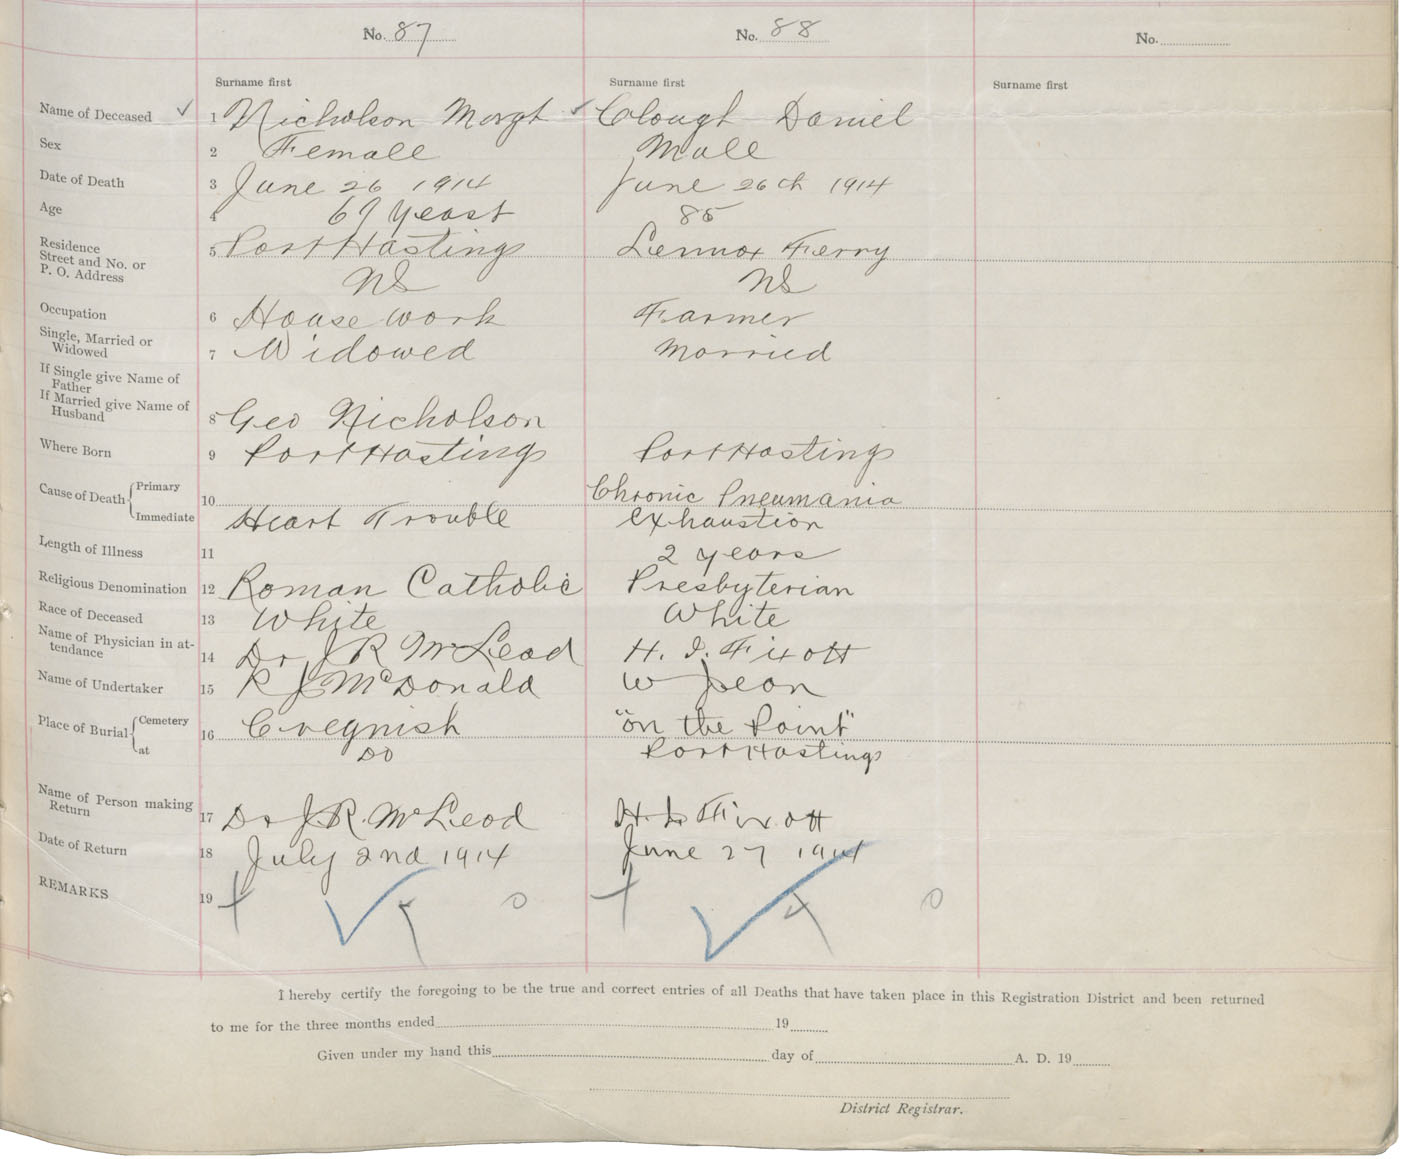 No. 87 No. 88 No.
Surname first Surname first Surname first
Name of Deceased 1 Nicholson Margt Clough Daniel
Sex 2 Female Male
Date of Death 3 June 26 1914 June 26th 1914
Age 4 69 years 85
Residence
Street and No. or
P. O. Address 5 Port Hastings Lennox Ferry
NS NS
Occupation 6 House work Farmer
Single, Married or
Widowed 7 Widowed Married
If Single give Name of
Father
If Married give Name of
Husband 8 Geo Nicholson
Where Born 9 Port Hastings Port Hastings
Cause of Death Primary 10 Chronic Pneumania
Immediate Heart Trouble exhaustion
Length of Illness 11 2 years
Religious Denomination 12 Roman Catholic Presbyterian
Race of Deceased 13 White White
Name of Physician in at-
tendance 14 Dr J R McLeod H. I. Fixott
Name of Undertaker 15 R J McDonald W Jean
Place of Burial Cemetery 16 Cregnish "on the Point"
at DO Port Hastings
Name of Person making
Return 17 Dr J R. McLeod H. I. Fixott
Date of Return 18 July 2nd 1914 June 27 1914
REMARKS 19
I hereby certify the foregoing to be the true and correct entries of all Deaths that have taken place in this Registration District and been returned
to me for the three months ended 19
Given under my hand this day of A. D. 19
District Registrar.